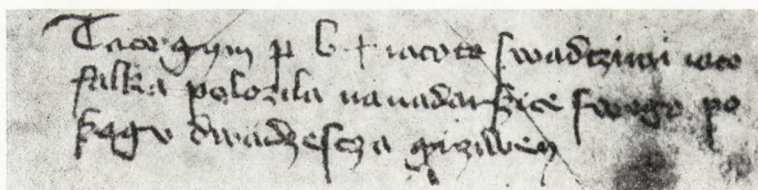 Tacogym p b + iacote swadczimi iaco
falka polozila swego po
sagv dwadzescza grziwen